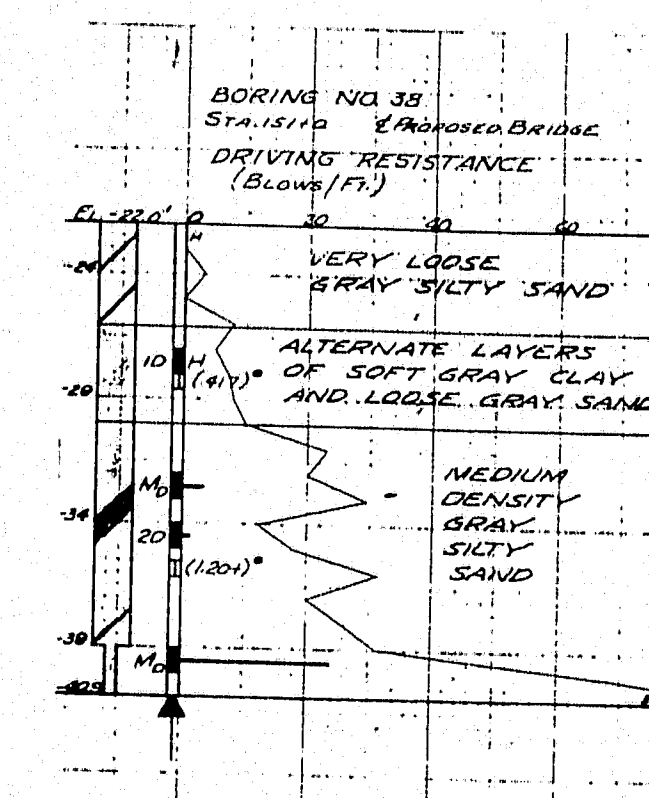 BORING NO. 38
STA. 151+0 ℄ PROPOSED BRIDGE
DRIVING RESISTANCE
(BLOWS/FT.)
EL. -22.0' 0 20 40 60
H
-24
VERY LOOSE
GRAY SILTY SAND
1D H
(.417)
-29
ALTERNATE LAYERS
OF SOFT GRAY CLAY
AND LOOSE GRAY SAND
MD
-34
2D
(1.20+)
MEDIUM
DENSITY
GRAY
SILTY
SAND
-39
MD
-40.9